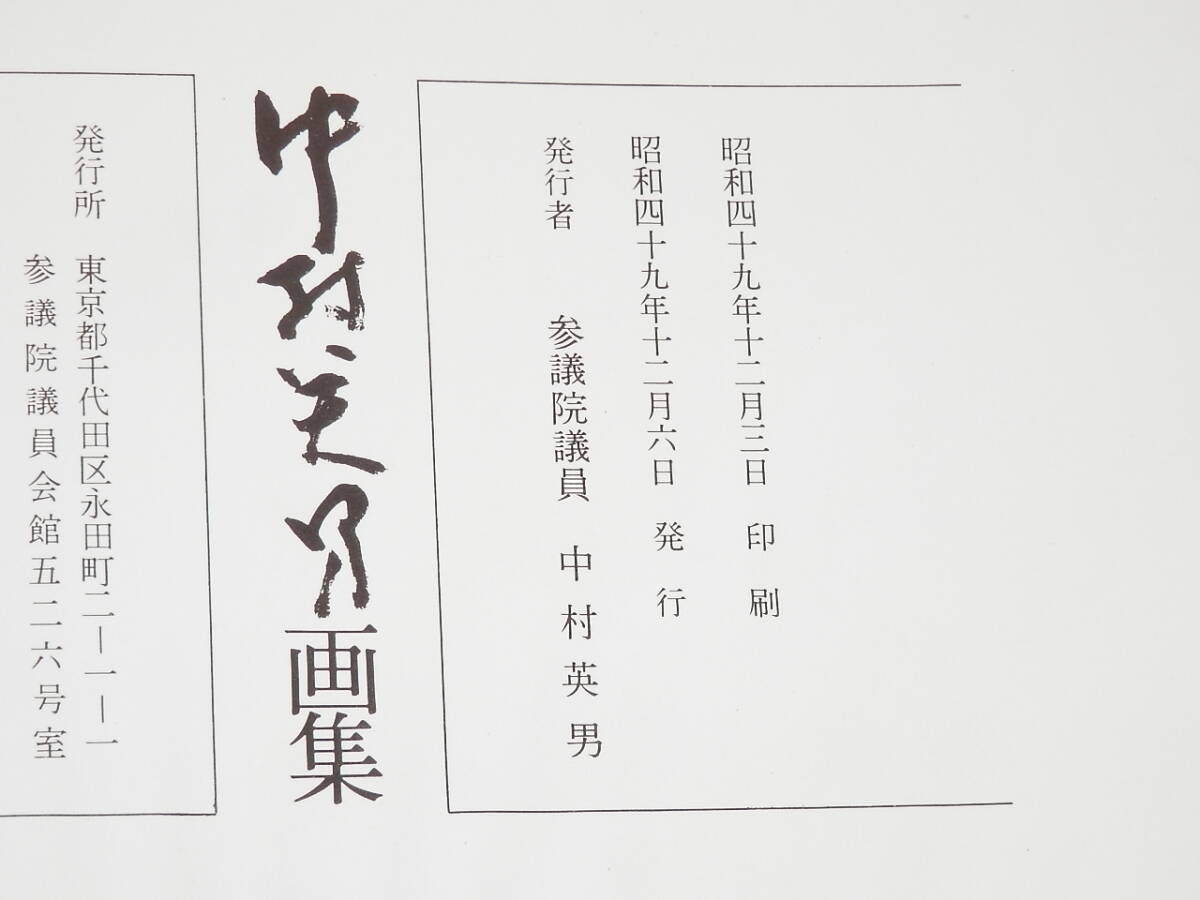 昭和四十九年十二月三日 印刷
昭和四十九年十二月六日 発行
発行者 参議院議員 中村英男
中村英男画集
発行所 東京都千代田区永田町二ー一ー一
参議院議員会館五二六号室